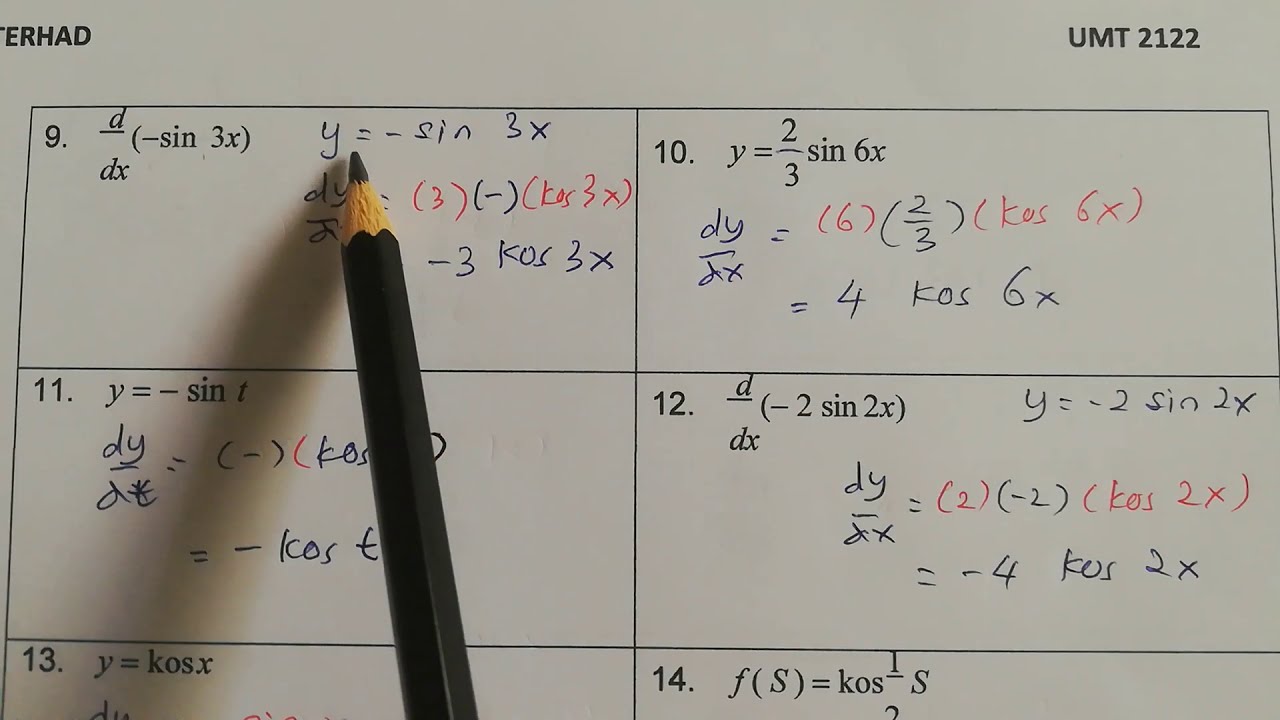 TERHAD UMT 2122
9. d/dx (–sin 3x) y = - sin 3x
dy = (3)(-)(kos 3x)
-3 kos 3x
10. y = 2/3 sin 6x
dy/dx = (6)(2/3)(kos 6x)
= 4 kos 6x
11. y = – sin t
dy/dt = (-)(kos )
= - kos t
12. d/dx (– 2 sin 2x) y = -2 sin 2x
dy/dx = (2)(-2)(kos 2x)
= -4 kos 2x
13. y = kosx
dy
14. f(S) = kos 1/2 S